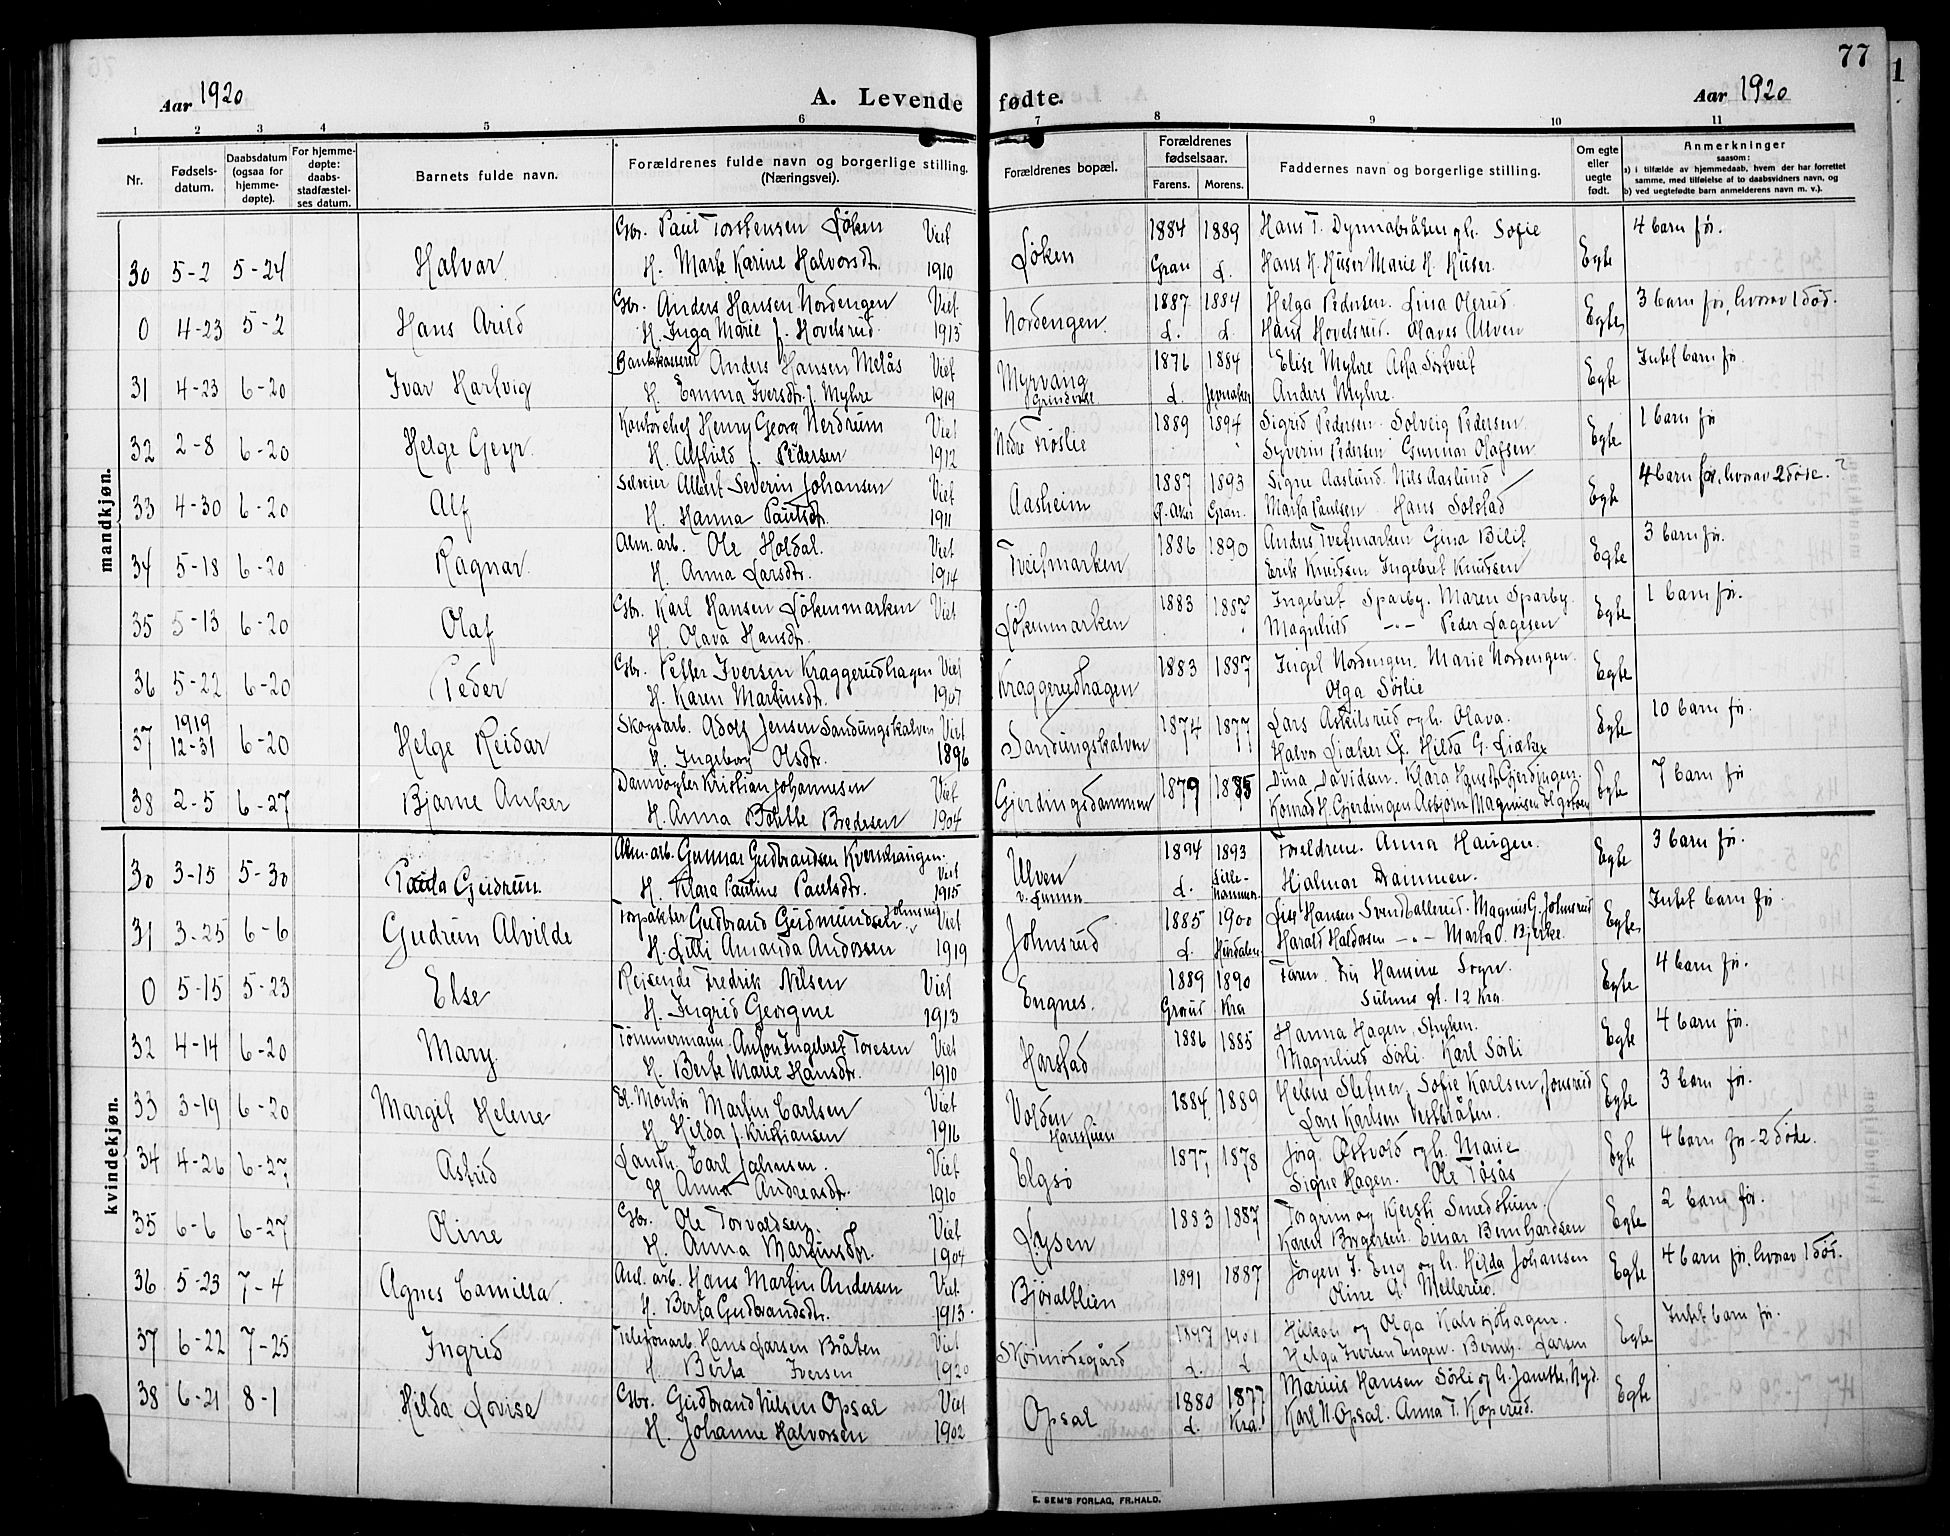 77
1
Aar 1920
A. Levende fødte.
Aar 1920
1 2 3 4 5 6 7 8 9 10 11
Nr.
Fødsels-
datum.
Daabsdatum
(ogsaa for
hjemme-
døpte).
For hjemme-
døpte:
daabs-
stadfæstel-
ses datum.
Barnets fulde navn.
Forældrenes fulde navn og borgerlige stilling.
(Næringsvei).
Forældrenes bopæl.
Forældrenes
fødselsaar.
Farens. Morens.
Faddernes navn og borgerlige stilling.
Om egte
eller
uegte
født.
Anmerkninger
saasom:
a) i tilfælde av hjemmedaab, hvem der har forrettet
samme, med tilføielse af to daabsvidners navn, og
b) ved uegtefødte barn anmelderens navn m. v.).
mandkjøn.
Gbr. Paul Torstensen Løken Viet 1884 1889 Hans T. Dynnabråten og h. Sofie 4 barn før.
30 5-2 5-24 Halvor H. Marte Karine Halvorsdr. 1910 Løken Gran L. Hans H. Huser Marie H. Huser. Egte
Gbr. Anders Hansen Nordengen Viet 1887 1884 Helga Pedersen. Lina Olerud. 3 barn før, hvorav 1 død.
0 4-23 5-2 Hans Arild H. Inga Marie f. Hovelsrud 1913 Nordengen L. L. Hans Hovelsrud. Olaves Ulven Egte
Bankkasserer Anders Hansen Melås Viet Myrvang 1876 1884 Elise Myhre Asta Sortveit Intet barn før.
31 4-23 6-20 Ivar Hartvig H. Emma Iversdtr. f. Myhre 1919 Grindvoll L. Jevnaker Anders Myhre. Egte
Kontorchef Henry Georg Nerdrum Viet 1889 1894 Sigrid Pedersen. Solveig Pedersen 1 barn før
32 2-8 6-20 Helge Geyr. H. Alfhild f. Pedersen 1912 Nedre Frøslie Syverin Pedersen Gunnar Olafsen Egte
Albert Severin Johansen Viet 1887 1893 Signe Aaslund Nils Aaslund 4 barn før, hvorav 2 døde.?
33 4-30 6-20 Alf H. Hanna Paulsdr. 1911 Aasheim Ø. Aker Gran. Marta Paulsen Hans Solstad Egte
Alm. arb. Ole Holdal. Viet 1886 1890 Anders Tveitmarken Gina Bilit 3 barn før.
34 5-18 6-20 Ragnar. H. Anna Larsdtr. 1914 Tveitmarken Erik Knutsen Ingebret Knutsen Egte
Gbr. Karl Hansen Løkenmarken Viet 1883 1887 Ingebret Sparby. Maren Sparby. 1 barn før.
35 5-13 6-20 Olaf H. Olava Hansdtr. Løkenmarken Magnhild -"- Peder Lagesen Egte
Gbr. Petter Iversen Kraggerudhagen Viet 1883 1887 Ingel Nordengen. Marie Nordengen.
36 5-22 6-20 Peder H. Karen Martinsdtr. 1907 Kraggerudhagen Olga Sørlie Egte
1919 Skogsarb. Adolf Jensen Sandungskalven Viet 1874 1877 Lars Askilsrud og h. Olava. 10 barn før.
37 12-31 6-20 Helge Reidar H. Ingeborg Olsdtr. 1896 Sandungskalven Halvor Liæker G. Hilda G. Liæker Egte
Damvogter Kristian Johannesen Viet 1879 1885 Dina Davidsen. Klara Hansdtr. Gjerdingen. 7 barn før
38 2-5 6-27 Bjarne Anker H. Anna Bolette Bredesen 1904 Gjerdingsdammen Konrad H. Gjerdingen Asbjørn Magnusen Elgshoen Egte
kvindekjøn.
Alm. arb. Gunnar Gudbrandsen Kvernhaugen. Viet Ulven 1894 1893 Foreldrene. Anna Haugen. 3 barn før.
30 3-15 5-30 Paula Gudrun. H. Klara Pauline Paulsdtr. 1915 v. Lunner L. Lille-hammer. Hjalmar Drammen. Egte
Torpakter Gudbrand Gudmundsen Johnsrud Viet 1885 1900 Hansen Svendballerud. Magnus G. Johnsrud Intet barn før.
31 3-25 6-6 Gudrun Alvilde H. Lilli Amanda Andersen 1919 Johnsrud L. Hurdalen Harald Haldorsen -"- Marta O. Bjerke. Egte
Reisende Fredrik Nilsen Viet 1889 1890 Faren. Frk Hansine Sogn. 4 barn før.
0 5-15 5-23 Else H. Ingrid Georgine 1913 Engnes. Grorud Kra gt. 12 Kra. Egte
Tømmermann. Anton Ingebret Toresen Viet 1886 1885 Hanna Hagen, Stryken. 4 barn før.
32 4-14 6-20 Mary. H. Berte Marie Hansdtr. 1910 Harstad Magnhild Sørli. Karl Sørli Egte
El. Montør Martin Carlsen Viet Volden 1884 1889 Helene Stefner, Sofie Karlsen, Jonsrud 3 barn før.
33 3-19 6-20 Margit Helene H. Hilda f. Kristiansen 1916 Harestuen Lars Karlsen Vestbråten. Egte
Landh. Carl Johnsen. Viet 1877 1878 Jørg. Østvold og h. Marie 4 barn før - 2 døde.
34 4-26 6-27 Astrid H. Anna Andreasdtr. 1910 Elgsø Signe Hagen. Ole Tåsås Egte
Gbr. Ole Torvaldsen. Viet 1883 1887 Torgrim og Kjersti Smedstuen. 2 barn før.
35 6-6 6-27 Oline H. Anna Martinsdtr. 1904 Lysen Karen Borgersen. Einar Bernhardsen Egte
Anl. arb. Hans Martin Andersen Viet 1891 1887 Jørgen J. Eng og h. Hilda Johansen 4 barn før, hvorav 1 død.
36 5-23 7-4 Agnes Camilla. H. Berta Gudbrandsdtr. 1913. Bjøralhlien Oline A. Mellerud. Egte
Telefonarb. Hans Larsen Bråten Viet 1897 1901 Håkon og Olga Kalvsjøhagen. Intet barn før.
37 6-22 7-25 Ingrid H. Berta Iversen 1920 Skøienødegård L. L. Helga Iversen Engen. Bernh. Larsen Egte
Gbr. Gudbrand Nilsen Opsal Viet 1880 1877 Marius Hansen Sørli og h. Janette, Nyd.
38 6-21 8-1 Hilda Lovise H. Johanne Halvorsen 1902 Opsal L. Kra. Karl N. Opsal. Anna T. Koperud. Egte
E. SEM'S FORLAG, FR.HALD.